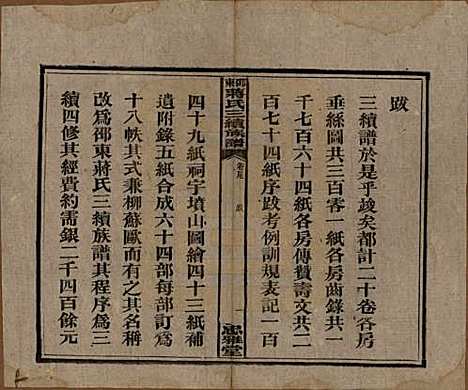 跋
三續譜於是乎竣矣都計二十卷各房
垂絲圖共三百零一紙各房齒錄共一
千七百六十四紙各房傳贊壽文共二
百七十四紙序跋考例訓規表記一百
邵東蔣氏三續族譜
卷尾
跋
一
思雅堂
四十九紙祠宇墳山圖繪四十三紙補
遺附錄五紙合成六十四部每部訂為
十八帙其式兼柳蘇歐而有之其名稱
改為邵東蔣氏三續族譜其程序為三
續四修其經費約需銀二千四百餘元